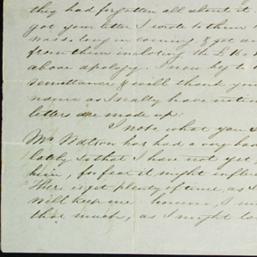 they had forgotten all about it
got your letter I wrote to them
was so long in coming & yet an
from them inclosing the L
above apology. I now beg to
remittance & will thank you
name as I really have not
letters are made up.
I note what you
Mr Watson has had a very bad
lately so that I have not yet
him, for fear it might influe
There is yet plenty of time, as I
will keep me however, I
that much, as I might lo